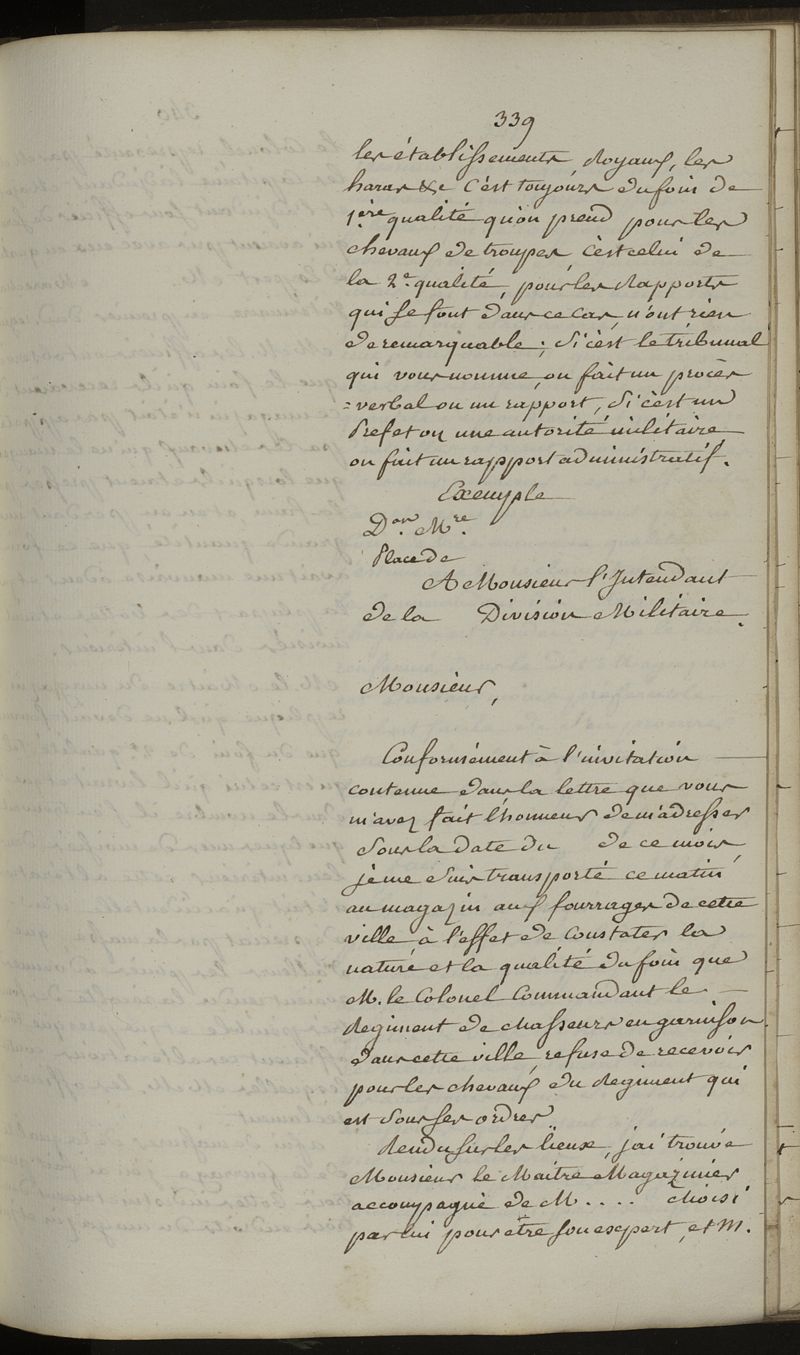 339
les établissements Royaux, les
haras &c c'est toujours du foin de
1ère qualité qu'on prend pour les
chevaux de troupes c'est celui de
la 2e qualité, pour les Rapports
qui se font dans ce cas, n'ont rien
de remarquable ; Si c'est le tribunal
qui vous nomme, on fait un procès
=verbal ou un rapport, Si c'est un
Prefet ou une autorité militaire
on fait un rapport administratif.
Exemple
Don Mre.
Place de
A Monsieur l'Intendant
de la Division Militaire.
Monsieur,
Conformément à l'invitation
contenue dans la lettre que vous
m'avez fait l'honneur de m'adresser
Sous la date du de ce mois,
je me suis transporté ce matin
au magazin aux fourrages de cette
ville à l'effet de constater la
nature et la qualité du foin que
M. le Colonel Commandant le
Regiment de chasseurs en garnison
dans cette ville, refuse de recevoir
pour les chevaux du Regiment qui
est sous ses ordres
Rendu sur les lieux, j'ai trouvé
Monsieur le Maitre Magazinier
accompagné de M.... choisi
par lui pour être son expert, et M.